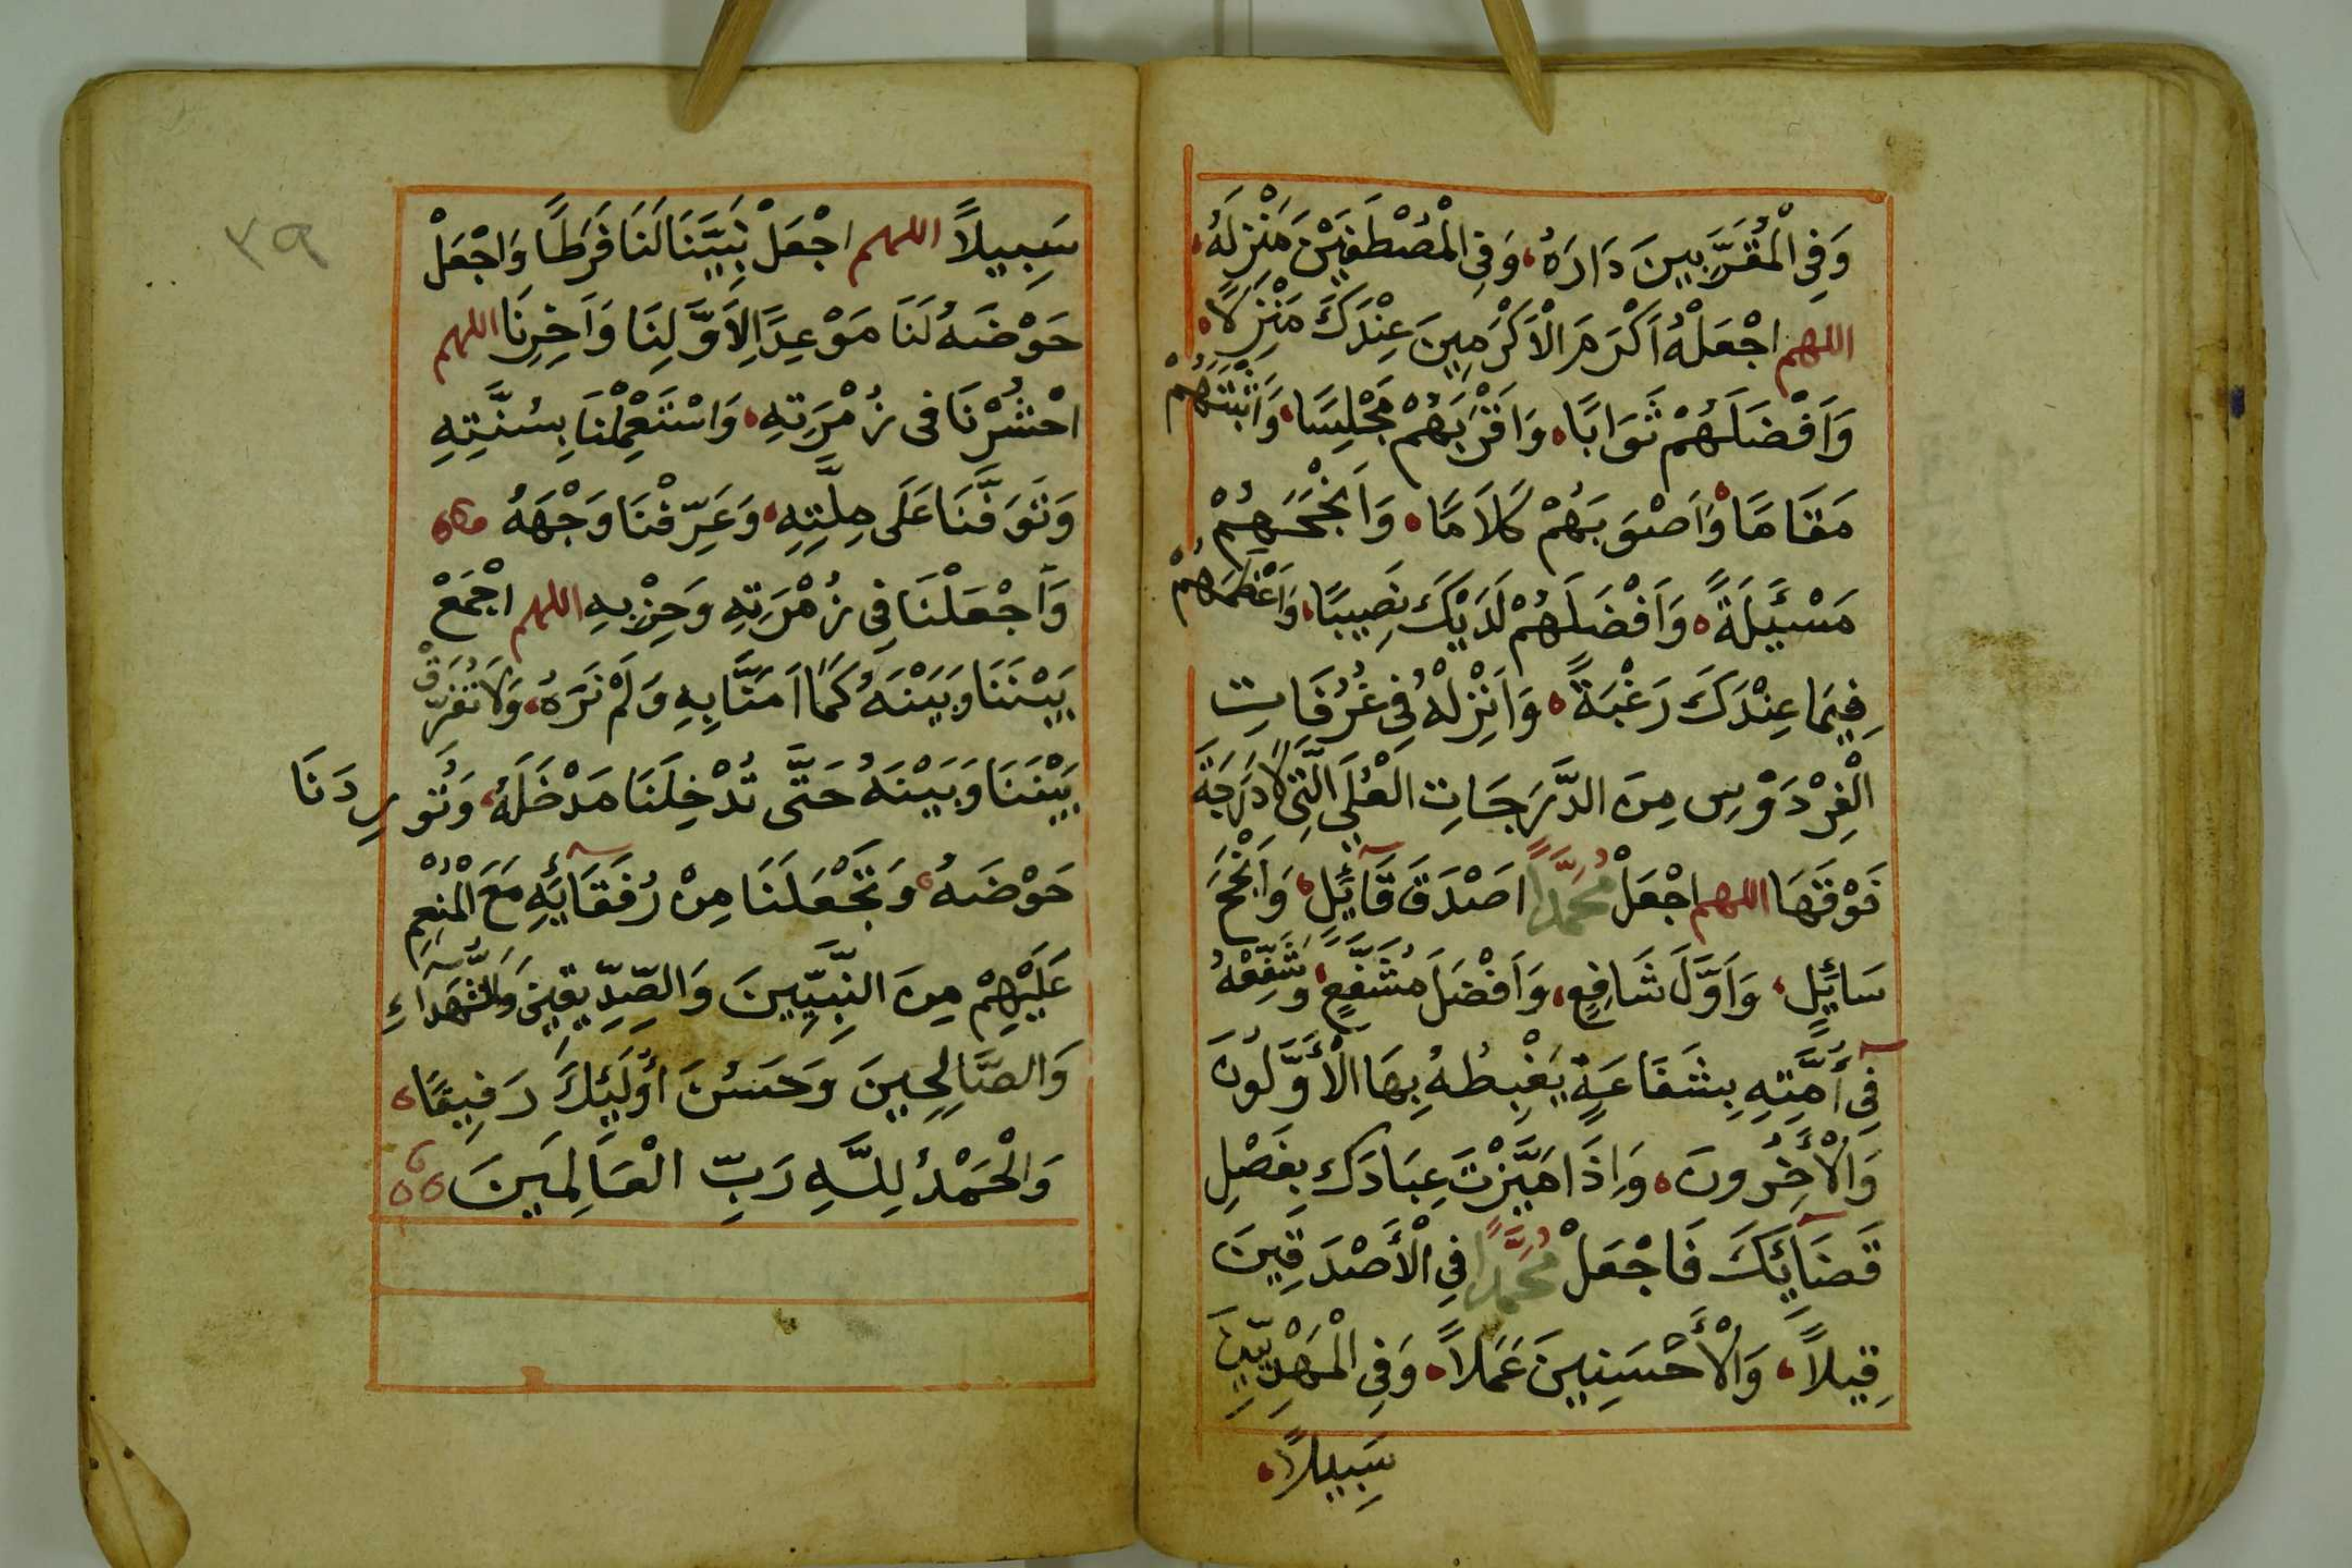 وَفِي الْمُقَرَّبِينَ دَارَهُ، وَفِي الْمُصْطَفَيْنَ مَنْزِلَهُ،
اللهم اجْعَلْهُ اَكْرَمَ الْاَكْرَمِينَ عِنْدَكَ مَنْزِلًا،
وَاَفْضَلَهُمْ ثَوَابًا، وَاَقْرَبَهُمْ مَجْلِسًا، وَاَثْبَتَهُمْ
مَقَامًا، وَاَصْوَبَهُمْ كَلَامًا، وَاَنْجَحَهُمْ
مَسْئَلَةً، وَاَفْضَلَهُمْ لَدَيْكَ نَصِيبًا، وَاَعْظَمَهُمْ
فِيمَا عِنْدَكَ رَغْبَةً، وَاَنْزِلْهُ فِي غُرُفَاتِ
الْفِرْدَوْسِ مِنَ الدَّرَجَاتِ الْعُلَى الَّتِي لَا دَرَجَةَ
فَوْقَهَا اللهم اجْعَلْ مُحَمَّدًا اَصْدَقَ قَآئِلٍ، وَاَنْجَحَ
سَائِلٍ، وَاَوَّلَ شَافِعٍ، وَاَفْضَلَ مُشَفَّعٍ، وَشَفِّعْهُ
فِي أُمَّتِهِ بِشَفَاعَةٍ يَغْبِطُهُ بِهَا الْأَوَّلُونَ
وَالْأخِرُونَ، وَاِذَا مَيَّزْتَ عِبَادَكَ بِفَصْلِ
قَضَآئِكَ فَاجْعَلْ مُحَمَّدًا فِي الْأَصْدَقِينَ
قِيلًا، وَالْأَحْسَنِينَ عَمَلًا، وَفِي الْمَهْدِيِّينَ
سَبِيلًا،
٣٩
سَبِيلًا اللهم اجْعَلْ نَبِيَّنَا لَنَا فَرَطًا وَاجْعَلْ
حَوْضَهُ لَنَا مَوْعِدًا لِاَوَّلِنَا وَاَخِرِنَا اللهم
احْشُرْنَا فى زُمْرَتِهِ، وَاسْتَعْمِلْنَا بِسُنَّتِهِ
وَتَوَفَّنَا عَلَى مِلَّتِهِ، وَعَرِّفْنَا وَجْهَهُ
وَاجْعَلْنَا فِي زُمْرَتِهِ وَحِزْبِهِ اللهم اجْمَعْ
بَيْنَنَا وَبَيْنَهُ كَمَا اَمَنَّا بِهِ وَلَمْ نَرَهُ، وَلَا تُفَرِّقْ
بَيْنَنَا وَبَيْنَهُ حَتَّى تُدْخِلَنَا مَدْخَلَهُ، وَتُورِدَنَا
حَوْضَهُ، وَتَجْعَلَنَا مِنْ رُفَقَآئِهِ مَعَ الْمُنْعَمِ
عَلَيْهِمْ مِنَ النَّبِيِّينَ وَالصِّدِّيقِينَ وَالشُّهَدَاءِ
وَالصَّالِحِينَ وَحَسُنَ اُولَئِكَ رَفِيقًا،
وَالْحَمْدُ لِلَّهِ رَبِّ الْعَالَمِينَ